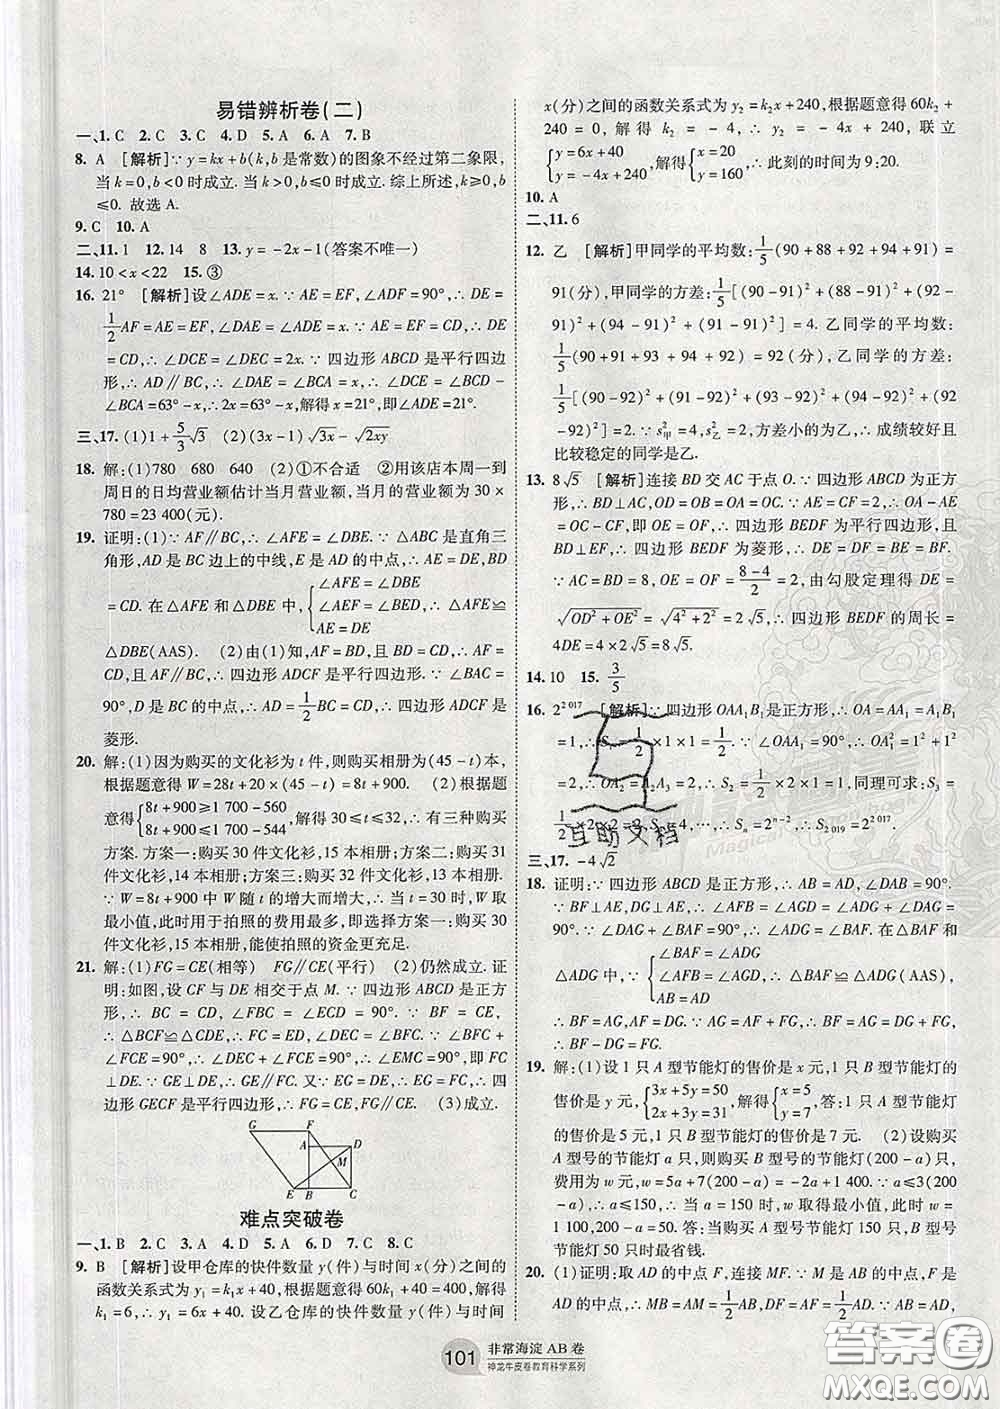 易错辨析卷(二)
一、1. C 2. C 3. C 4. D 5. A 6. A 7. B
8. A [解析]∵y=kx+b(k,b 是常数)的图象不经过第二象限,
当 k=0,b<0 时成立. 当 k>0,b⩽0 时成立. 综上所述,k⩾0,
b⩽0. 故选 A.
9. C 10. A
二、11. 1 12. 14 8 13. y=-2x-1(答案不唯一)
14. 10<x<22 15. ③
16. 21° [解析]设∠ADE=x. ∵AE=EF,∠ADF=90°,∴DE=
1/2AF=AE=EF,∠DAE=∠ADE=x. ∵AE=EF=CD,∴DE
=CD,∴∠DCE=∠DEC=2x. ∵四边形 ABCD 是平行四边
形,∴AD∥BC,∴∠DAE=∠BCA=x,∴∠DCE=∠BCD-
∠BCA=63°-x,∴2x=63°-x,解得 x=21°,即∠ADE=21°.
三、17. (1)1+5/3√3 (2)(3x-1)√3x-√2xy
18. 解:(1)780 680 640 (2)①不合适 ②用该店本周一到
周日的日均营业额估计当月营业额,当月的营业额为 30×
780=23 400(元).
19. 证明:(1)∵AF∥BC,∴∠AFE=∠DBE. ∵△ABC 是直角三
角形,AD 是 BC 边上的中线,E 是 AD 的中点,∴AE=DE,BD
=CD. 在△AFE 和△DBE 中,{∠AFE=∠DBE ∠AEF=∠BED, AE=DE ∴△AFE≌
△DBE(AAS). (2)由(1)知,AF=BD,且 BD=CD,∴AF=
CD,且 AF∥BC,∴四边形 ADCF 是平行四边形. ∵∠BAC=
90°,D 是 BC 的中点,∴AD=1/2BC=CD,∴四边形 ADCF 是
菱形.
20. 解:(1)因为购买的文化衫为 t 件,则购买相册(45-t)件,
根据题意得 W=28t+20×(45-t)=8t+900. (2)根据题
意得{8t+900⩾1 700-560 8t+900⩽1 700-544,解得 30⩽t⩽32,∴有三种购买
方案. 方案一:购买 30 件文化衫,15 本相册;方案二:购买 31
件文化衫,14 本相册;方案三:购买 32 件文化衫,13 本相册.
∵W=8t+900 中 W 随 t 的增大而增大,∴当 t=30 时,W 取
最小值,此时用于拍照的费用最多,即选择方案一:购买 30
件文化衫,15 本相册,能使拍照的资金更充足.
21. 解:(1)FG=CE(相等) FG∥CE(平行) (2)仍然成立. 证
明:如图,设 CF 与 DE 相交于点 M. ∵四边形 ABCD 是正方
形,∴BC=CD,∠FBC=∠ECD=90°. ∵BF=CE,
∴△BCF≌△CDE,∴FC=ED,∠DEC=∠BFC. ∵∠BFC+
∠FCB=90°,∴∠DEC+∠FCB=90°,∴∠EMC=90°,即 FC
⊥DE. ∵GE⊥DE,∴GE∥FC. 又∵EG=DE,∴EG=FC,∴四
边形 GECF 是平行四边形,∴FG=CE,FG∥CE. (3)成立.
G F A D M E B C
难点突破卷
一、1. B 2. C 3. A 4. D 5. A 6. D 7. C 8. C
9. B [解析]设甲仓库的快件数量 y(件)与时间 x(分)之间的
函数关系式为 y₁=k₁x+40,根据题意得 60k₁+40=400,解得
k₁=6,∴y₁=6x+40. 设乙仓库的快件数量 y(件)与时间
x(分)之间的函数关系式为 y₂=k₂x+240,根据题意得 60k₂+
240=0,解得 k₂=-4,∴y₂=-4x+240,联立
{y=6x+40 y=-4x+240,解得{x=20 y=160,∴此刻的时间为 9:20.
10. A
二、11. 6
12. 乙 [解析]甲同学的平均数:1/5(90+88+92+94+91)=
91(分),甲同学的方差:1/5[(90-91)²+(88-91)²+(92-
91)²+(94-91)²+(91-91)²]=4. 乙同学的平均数:
1/5(90+91+93+94+92)=92(分),乙同学的方差:
1/5[(90-92)²+(91-92)²+(93-92)²+(94-92)²+(92
-92)²]=2. ∵s²甲=4,s²乙=2,方差小的为乙,∴成绩较好且
比较稳定的同学是乙.
13. 8√5 [解析]连接 BD 交 AC 于点 O. ∵四边形 ABCD 为正方
形,∴BD⊥AC,OD=OB=OA=OC. ∵AE=CF=2,∴OA-AE
=OC-CF,即 OE=OF,∴四边形 BEDF 为平行四边形,且
BD⊥EF,∴四边形 BEDF 为菱形,∴DE=DF=BE=BF.
∵AC=BD=8,OE=OF=(8-4)/2=2,由勾股定理得 DE=
√(OD²+OE²)=√(4²+2²)=2√5,∴四边形 BEDF 的周长=
4DE=4×2√5=8√5.
14. 10 15. 3/5
16. 2^2 017 [解析]∵四边形 OAA₁B₁ 是正方形,∴OA=AA₁=A₁B₁
=1,∴S₁=1/2×1×1=1/2. ∵∠OAA₁=90°,∴OA₁²=1²+1²
=2,∴OA₂=A₂A₃=2,∴S₂=1/2×2×1=1,同理可求:S₃=
1/2×2×2=2,S₄=4,…,∴Sₙ=2ⁿ⁻²,∴S₂ ₀₁₉=2^2 017.
三、17. -4√2
18. 证明:∵四边形 ABCD 是正方形,∴AB=AD,∠DAB=90°.
∵BF⊥AE,DG⊥AE,∴∠AFB=∠AGD=∠ADG+∠DAG=
90°. ∵∠DAG+∠BAF=90°,∴∠ADG=∠BAF. 在△BAF 和
△ADG 中,{∠BAF=∠ADG ∠AFB=∠AGD, AB=AD ∴△BAF≌△ADG(AAS),
∴BF=AG,AF=DG. ∵AG=AF+FG,∴BF=AG=DG+FG,
∴BF-DG=FG.
19. 解:(1)设 1 只 A 型节能灯的售价是 x 元,1 只 B 型节能灯
的售价是 y 元,{3x+5y=50 2x+3y=31,解得{x=5 y=7. 答:1 只 A 型节能灯
的售价是 5 元,1 只 B 型节能灯的售价是 7 元. (2)设购买
A 型号的节能灯 a 只,则购买 B 型号的节能灯(200-a)只,
费用为 w 元,w=5a+7(200-a)=-2a+1 400. ∵a⩽3(200
-a),∴a⩽150,∴当 a=150 时,w 取得最小值,此时 w=
1 100,200-a=50. 答:当购买 A 型号节能灯 150 只,B 型号
节能灯 50 只时最省钱.
20. (1)证明:取 AD 的中点 F,连接 MF. ∵M 是 AB 的中点,F 是
AD 的中点,∴MB=AM=1/2AB,DF=AF=1/2AD. ∵AB=AD,
互助文档
101 非常海淀 AB 卷
神龙牛皮卷教育科学系列
答案圈
MXQE.COM